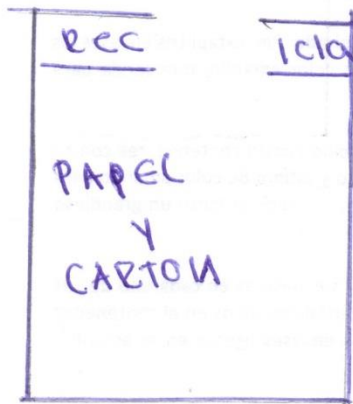 REC ICLA
PAPEL
Y
CARTON